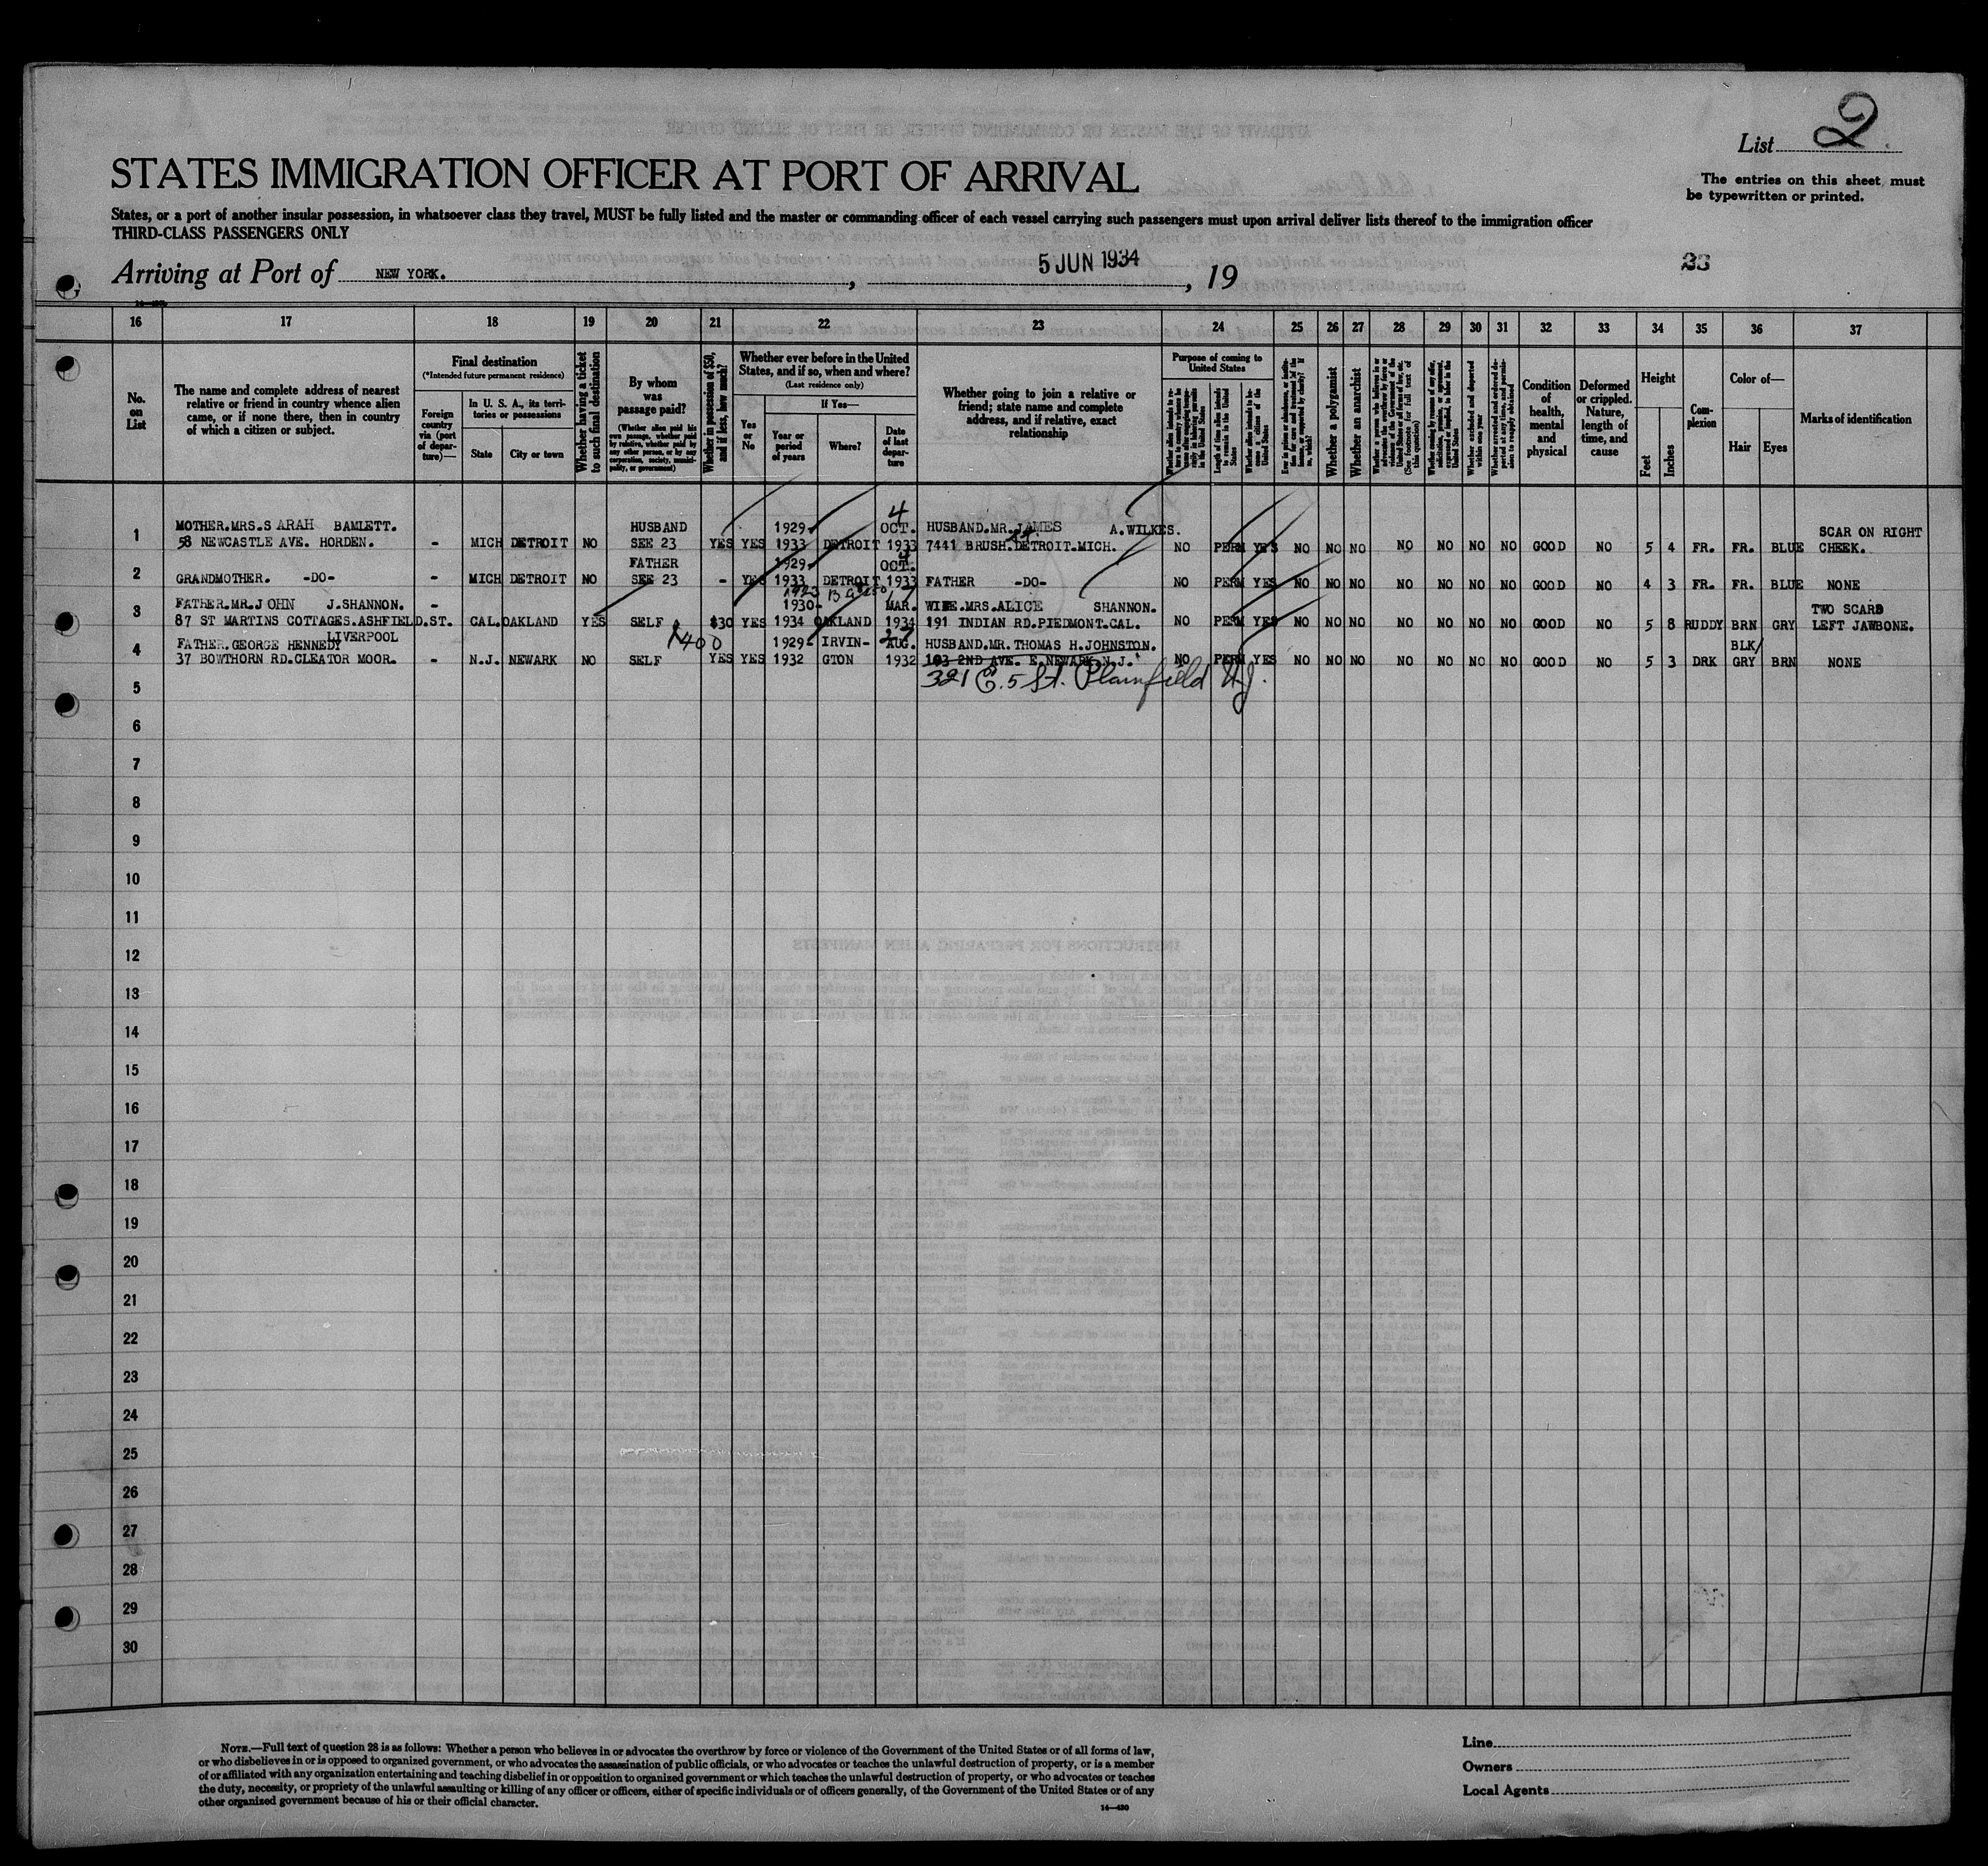 List 2
The entries on this sheet must
be typewritten or printed.
STATES IMMIGRATION OFFICER AT PORT OF ARRIVAL
States, or a port of another insular possession, in whatsoever class they travel, MUST be fully listed and the master or commanding officer of each vessel carrying such passengers must upon arrival deliver lists thereof to the immigration officer
THIRD-CLASS PASSENGERS ONLY
Arriving at Port of NEW YORK. , 5 JUN 1934 , 19
33
16 17 18 19 20 21 22 23 24 25 26 27 28 29 30 31 32 33 34 35 36 37
No.
on
List
The name and complete address of nearest
relative or friend in country whence alien
came, or if none there, then in country
of which a citizen or subject.
Final destination
(*Intended future permanent residence)
Foreign
country
via (port
of depar-
ture)—
In U. S. A., its terri-
tories or possessions
State
City or town
Whether having a ticket
to such final destination
By whom
was
passage paid?
(Whether alien paid his
own passage, whether paid
by relative, whether paid
by any other person, or by any
corporation, society, munici-
pality, or government)
Whether in possession of $50,
and if less, how much?
Whether ever before in the United
States, and if so, when and where?
(Last residence only)
Yes
or
No
If Yes—
Year or
period
of years
Where?
Date
of last
depar-
ture
Whether going to join a relative or
friend; state name and complete
address, and if relative, exact
relationship
Purpose of coming to
United States
Length of time alien intends
to remain in the United
States
Whether a polygamist
Whether an anarchist
Condition
of
health,
mental
and
physical
Deformed
or crippled.
Nature,
length of
time, and
cause
Height
Feet
Inches
Com-
plexion
Color of—
Hair
Eyes
Marks of identification
MOTHER.MRS.S ARAH BAMLETT. HUSBAND 1929- 4 OCT. HUSBAND.MR.JAMES A.WILKES. SCAR ON RIGHT
1 58 NEWCASTLE AVE. HORDEN. - MICH DETROIT NO SEE 23 YES YES 1933 DETROIT 1933 7441 BRUSH.DETROIT.MICH. NO PERM YES NO NO NO NO NO NO NO GOOD NO 5 4 FR. FR. BLUE CHEEK.
FATHER 1929- 4 OCT.
2 GRANDMOTHER. -DO- - MICH DETROIT NO SEE 23 - YES 1933 DETROIT 1933 FATHER -DO- NO PERM YES NO NO NO NO NO NO NO GOOD NO 4 3 FR. FR. BLUE NONE
FATHER.MR.JOHN J.SHANNON. - 1930- MAR. WIFE.MRS.ALICE SHANNON. TWO SCARS
3 87 ST MARTINS COTTAGES.ASHFIELD.ST. CAL.OAKLAND YES SELF $30 YES 1934 OAKLAND 1934 191 INDIAN RD.PIEDMONT.CAL. NO PERM YES NO NO NO NO NO NO NO GOOD NO 5 8 RUDDY BRN GRY LEFT JAWBONE.
LIVERPOOL
FATHER.GEORGE HENNEDY $400 1929- IRVIN- 27 AUG. HUSBAND.MR.THOMAS H.JOHNSTON. BLK/
4 37 BOWTHORN RD.CLEATOR MOOR. - N.J. NEWARK NO SELF YES YES 1932 GTON 1932 103 2ND AVE. E.NEWARK.N.J. NO PERM YES NO NO NO NO NO NO NO GOOD NO 5 3 DRK GRY BRN NONE
321 E. 5 St. Plainfield N.J.
5
6
7
8
9
10
11
12
13
14
15
16
17
18
19
20
21
22
23
24
25
26
27
28
29
30
NOTE.—Full text of question 28 is as follows: Whether a person who believes in or advocates the overthrow by force or violence of the Government of the United States or of all forms of law,
or who disbelieves in or is opposed to organized government, or who advocates the assassination of public officials, or who advocates or teaches the unlawful destruction of property, or is a member
of or affiliated with any organization entertaining and teaching disbelief in or opposition to organized government or which teaches the unlawful destruction of property, or who advocates or teaches
the duty, necessity, or propriety of the unlawful assaulting or killing of any officer or officers, either of specific individuals or of officers generally, of the Government of the United States or of any
other organized government because of his or their official character.
14—430
Line
Owners
Local Agents